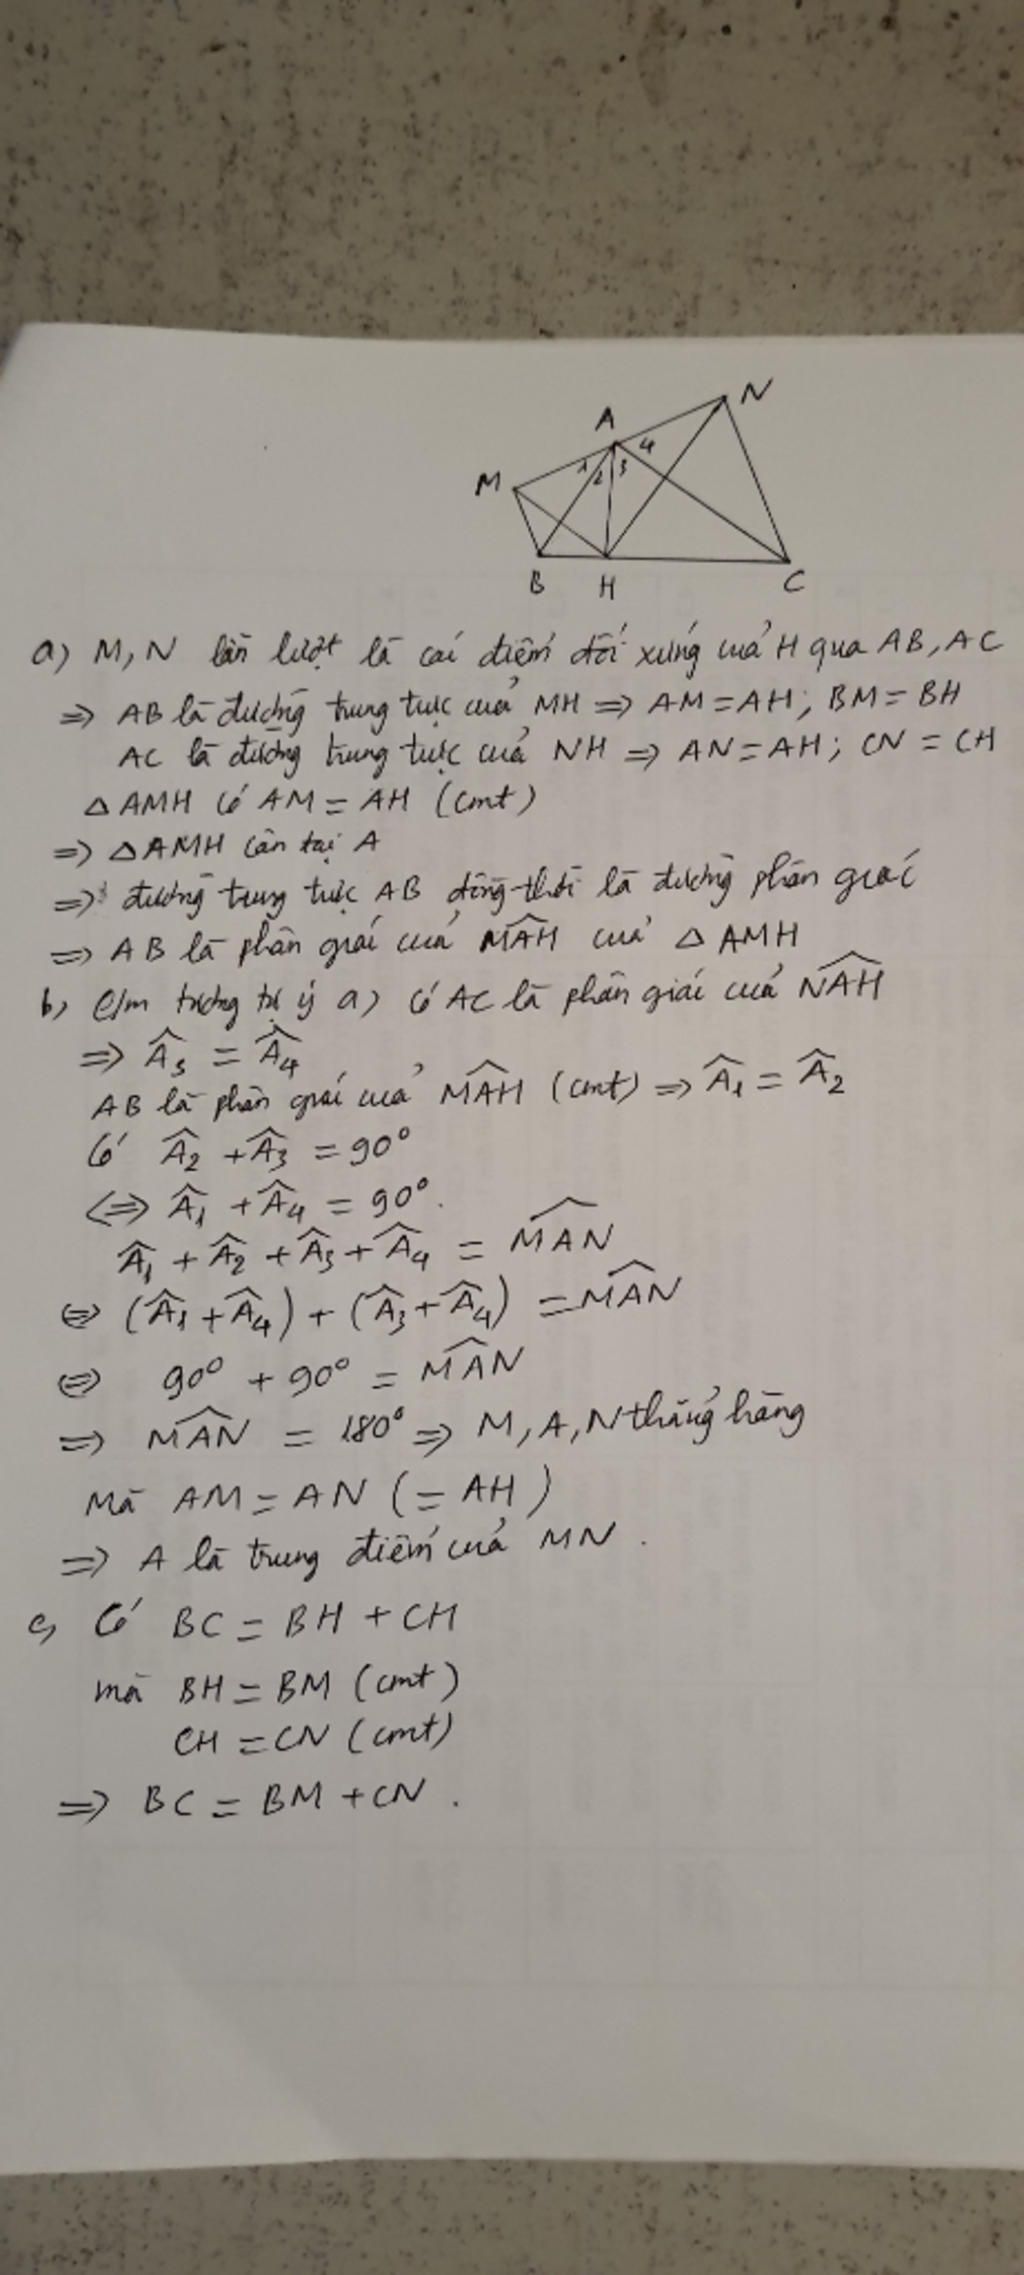 N
A
4
M
1
2
3
B
H
C
a) M, N lần lượt là các điểm đối xứng của H qua AB, AC
=> AB là đường trung trực của MH => AM = AH; BM = BH
AC là đường trung trực của NH => AN = AH; CN = CH
△AMH có AM = AH (cmt)
=> △AMH cân tại A
=> đường trung trực AB đồng thời là đường phân giác
=> AB là phân giác của \widehat{MAH} của △AMH
b) C/m tương tự ý a) có AC là phân giác của \widehat{NAH}
=> \widehat{A}₃ = \widehat{A}₄
AB là phân giác của \widehat{MAH} (cmt) => \widehat{A}₁ = \widehat{A}₂
Có \widehat{A}₂ + \widehat{A}₃ = 90°
<=> \widehat{A}₁ + \widehat{A}₄ = 90°.
\widehat{A}₁ + \widehat{A}₂ + \widehat{A}₃ + \widehat{A}₄ = \widehat{MAN}
<=> (\widehat{A}₁ + \widehat{A}₄) + (\widehat{A}₃ + \widehat{A}₄) = \widehat{MAN}
<=> 90° + 90° = \widehat{MAN}
=> \widehat{MAN} = 180° => M, A, N thẳng hàng
Mà AM = AN (= AH)
=> A là trung điểm của MN.
c, Có BC = BH + CH
mà BH = BM (cmt)
CH = CN (cmt)
=> BC = BM + CN.